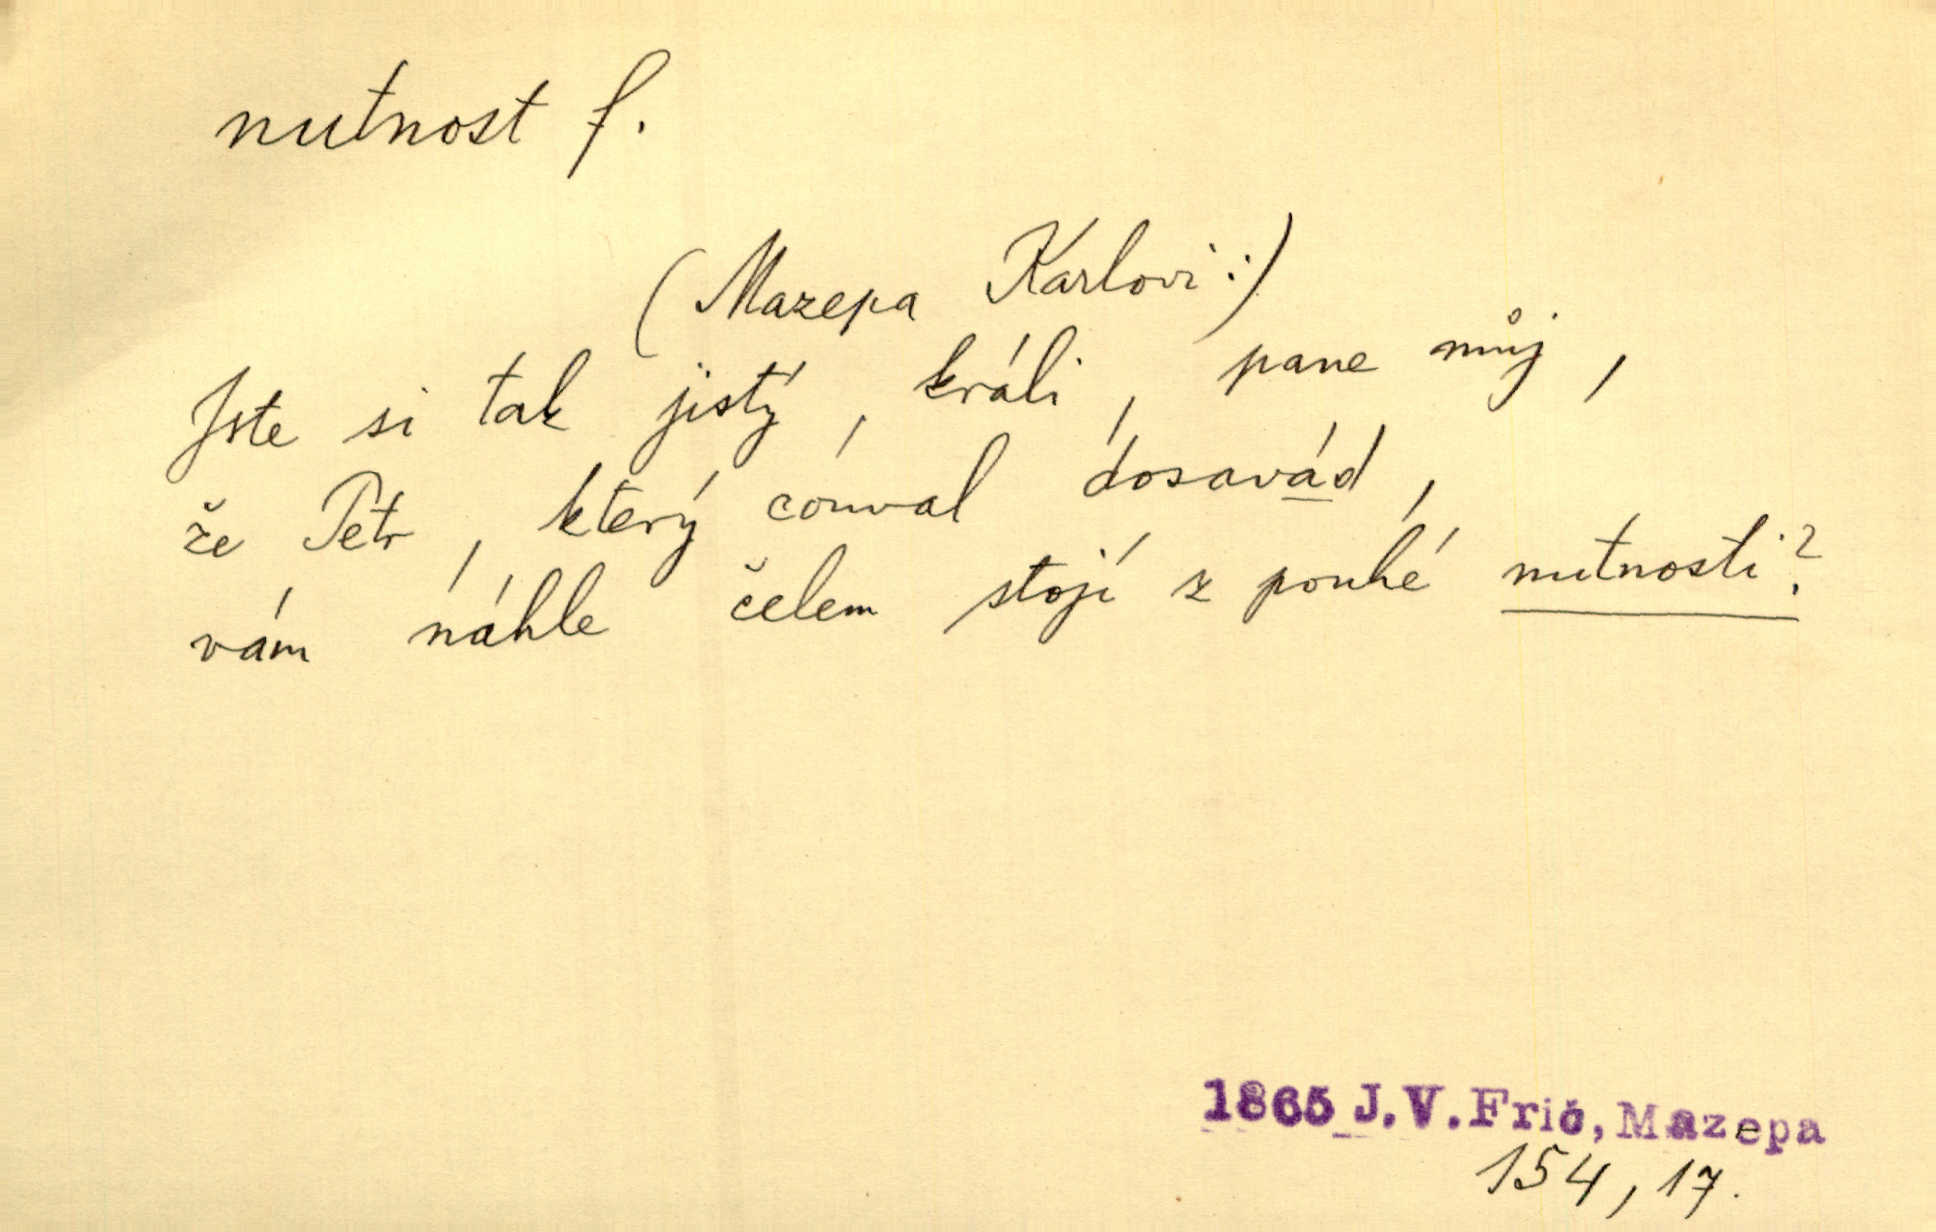 nutnost f.
(Mazepa Karlovi:)
Jste si tak jistý, králi, pane můj,
že Petr, který couval dosavád,
vám náhle čelem stojí z pouhé nutnosti?
1865 J.V.Frič, Mazepa
154, 17.